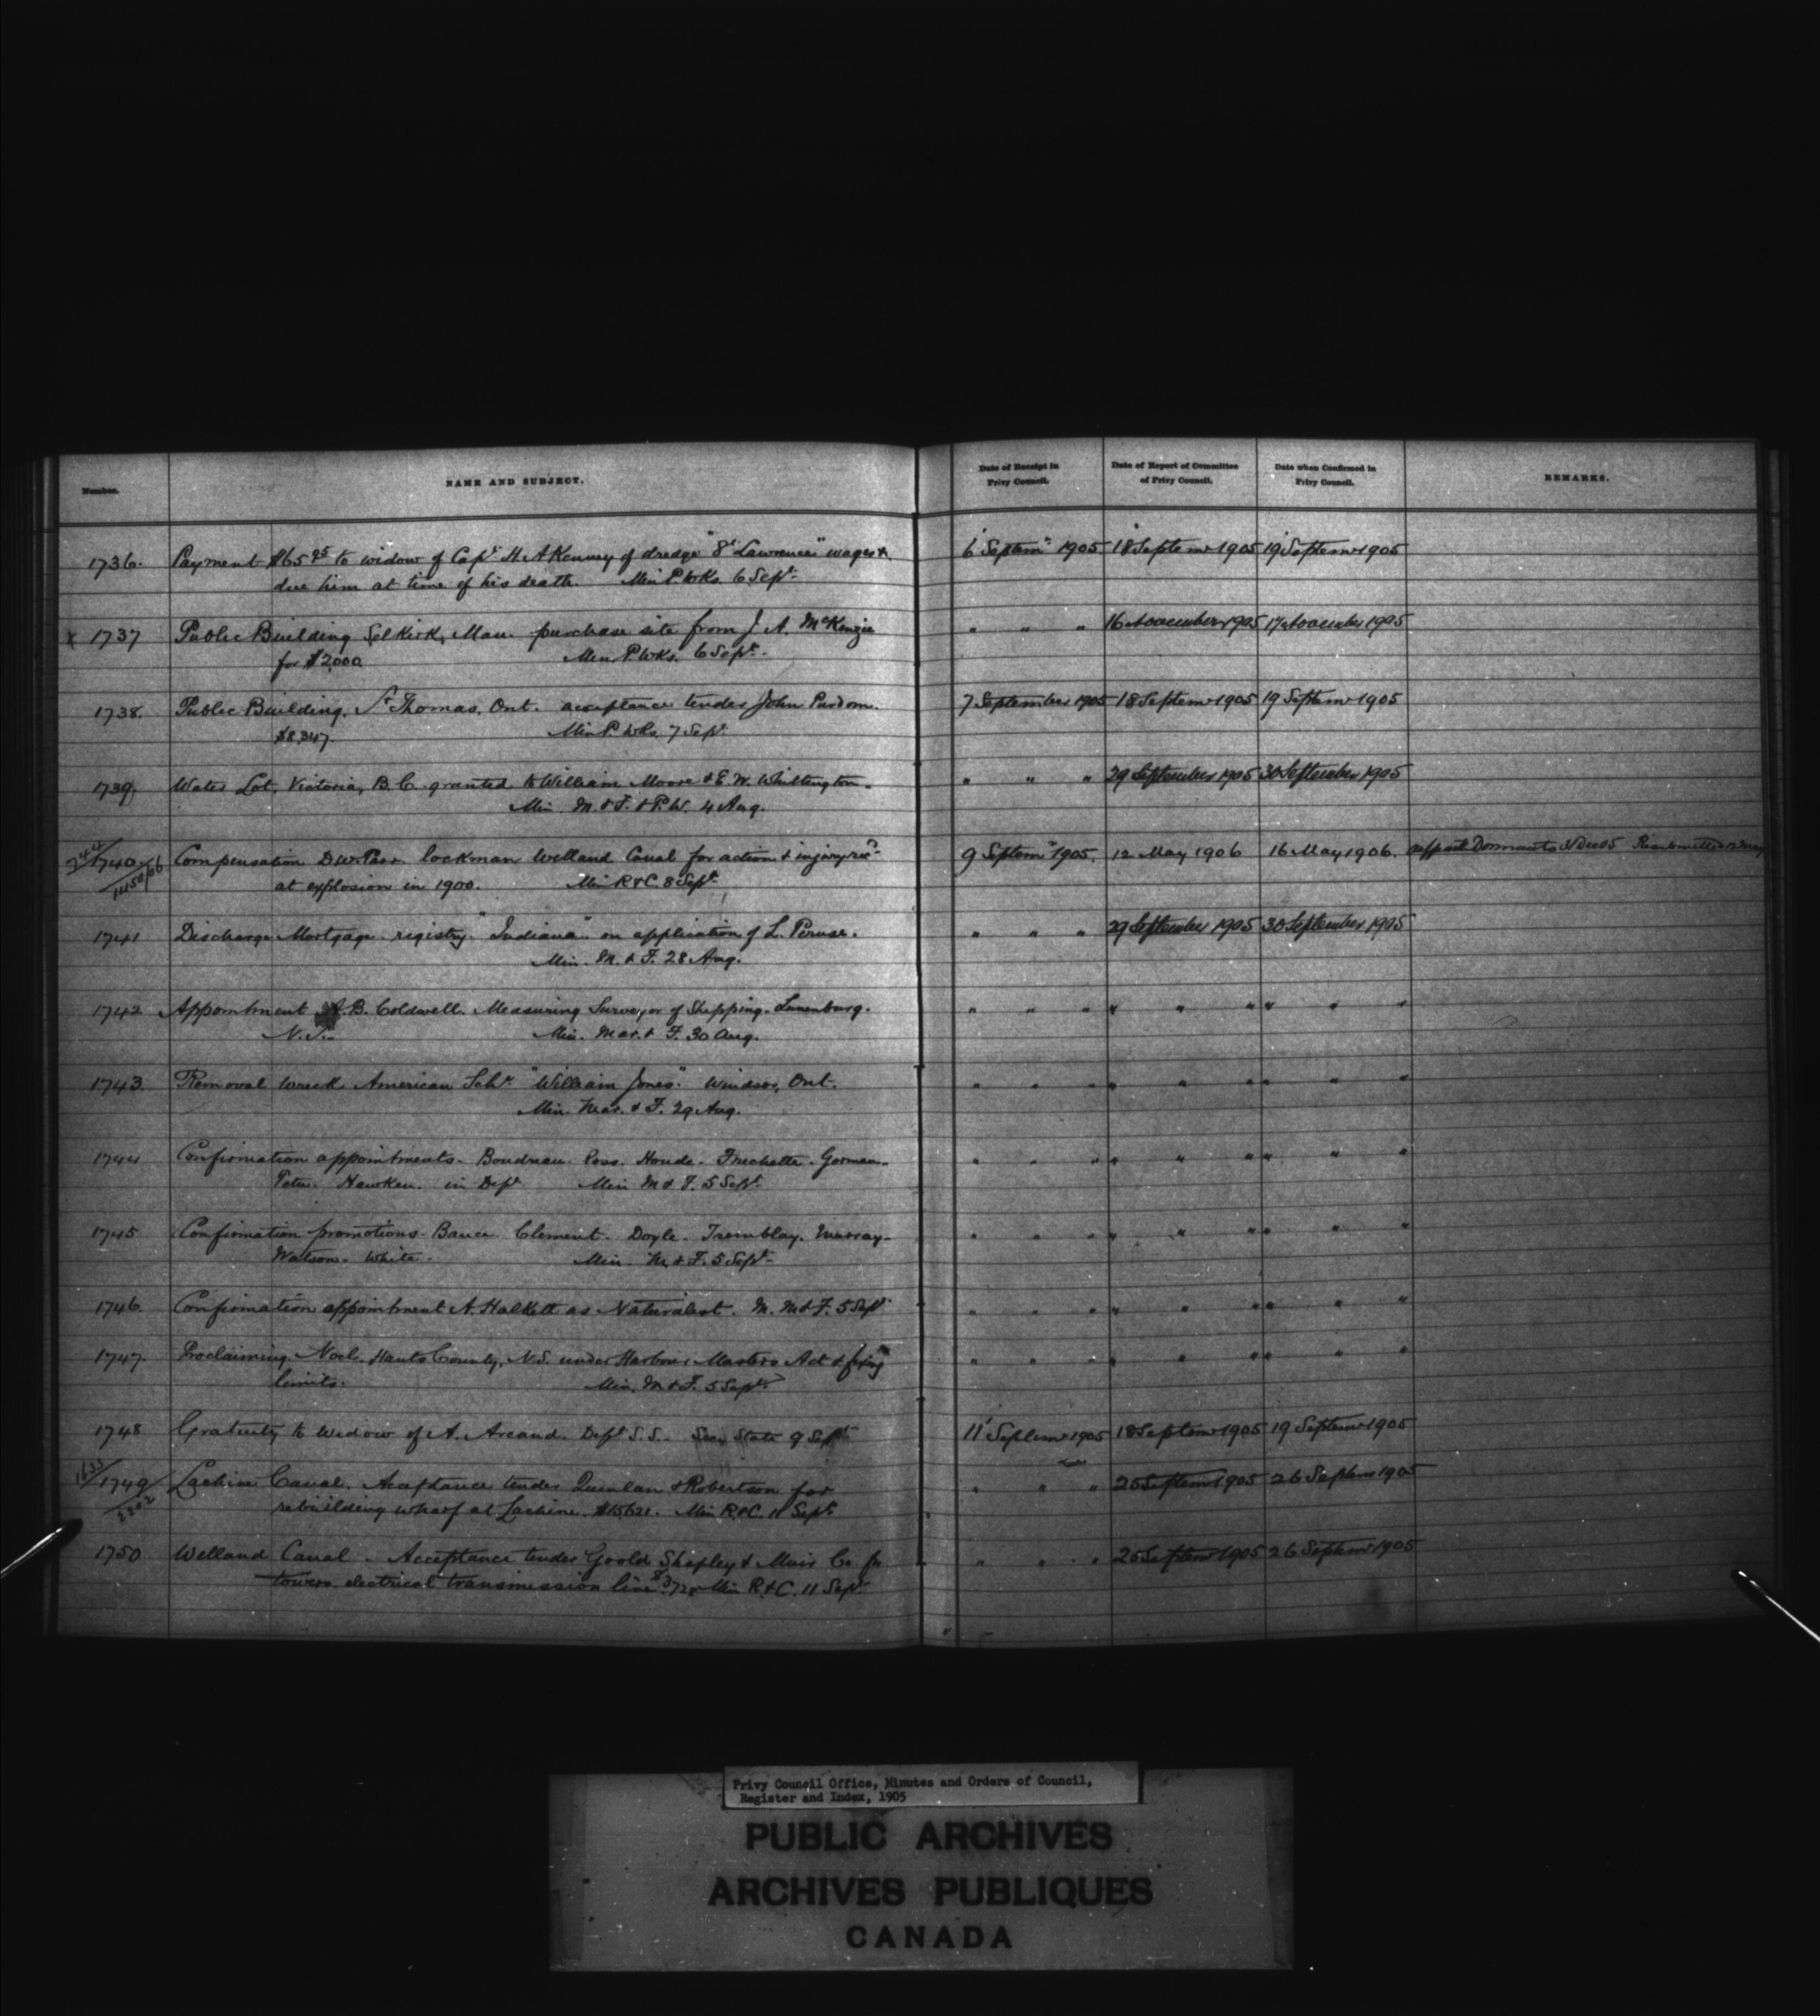 Number.
NAME AND SUBJECT.
Date of Receipt in Privy Council.
Date of Report of Committee of Privy Council.
Date when Confirmed in Privy Council.
REMARKS.
1736. Payment $65 95 to widow of Capt. H. A Kenney of dredge "St Lawrence" wages 6 Septemr 1905 18 Septemr 1905 19 Septemr 1905
due him at time of his death. Min P. Wks 6 Sept.
x 1737 Public Building Selkirk, Man. purchase site from J. A. McKenzie " " " 16 November 1905 17 November 1905
for $2,000 Min. P. Wks. 6 Sept.
1738. Public Building. St Thomas. Ont. acceptance tender John Purdom. 7 September 1905 18 Septemr 1905 19 Septemr 1905
$8,347 Min P. Wks. 7 Sept
1739 Water Lot, Victoria, B.C. granted to William Moore & E. W. Whittington. " " " 29 September 1905 30 September 1905
Min M. & F. & P.W. 4 Aug.
1740 Compensation D.W. lockman Welland Canal for action & injury 9 Septemr 1905. 12 May 1906 16 May 1906.
1450/06 at explosion in 1900. Min R & C. 8 Sept
1741 Discharge Mortgage registry "Indiana" on application of L. " " " 29 September 1905 30 September 1905
Min. M. & F. 28 Aug.
1742 Appointment A.B. Coldwell. Measuring Surveyor of Shipping. Lunenburg. " " " " " " " " "
N.S. Min. Mar. & F. 30 Aug.
1743. Removal wreck American Schr. "William Jones". Windsor, Ont. " " " " " " " " "
Min. Mar. & F. 29 Aug.
1744 Confirmation appointments. Boudreau. Ross. Houde. Frechette. Gorman. " " " " " " " " "
Hawken. in Dept Min M & F. 5 Sept
1745 Confirmation promotions. Clement. Doyle. Tremblay. Murray. " " " " " " " " "
Watson. White. Min M. & F. 5 Sept
1746. Confirmation appointment A. Halkett as Naturalist. M. M & F. 5 Sept " " " " " " " " "
1747. Proclaiming Noel. Hants County, N.S. under Harbour Masters Act & fixing " " " " " " " " "
limits. Min. M & F. 5 Sept
1748 Gratuity to widow of A. Arcand. Dept S.S. Secy State 9 Sept 11 Septemr 1905 18 Septemr 1905 19 Septemr 1905
1635/
1749 Lachine Canal. Acceptance tender Quinlan & Robertson for " " " 25 Septemr 1905 26 Septemr 1905
2202 rebuilding wharf at Lachine. Min R & C. 11 Sept
1750 Welland Canal. Acceptance tender Goold Shapley & Muir Co. for " " " 25 Septemr 1905 26 Septemr 1905
towers electrical transmission line Min R. & C. 11 Sept
Privy Council Office, Minutes and Orders of Council,
Register and Index, 1905
PUBLIC ARCHIVES
ARCHIVES PUBLIQUES
CANADA